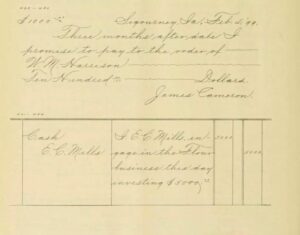 $1000 00/100 Sigourney, Ia., Feb. 5, '99.
Three months after date I
promise to pay to the order of
W. M. Harrison
Ten Hundred Dollars.
James Cameron.
Cash I, E. C. Mills, en- 5000
E. C. Mills gage in the Flour 5000
business this day
investing $5000.